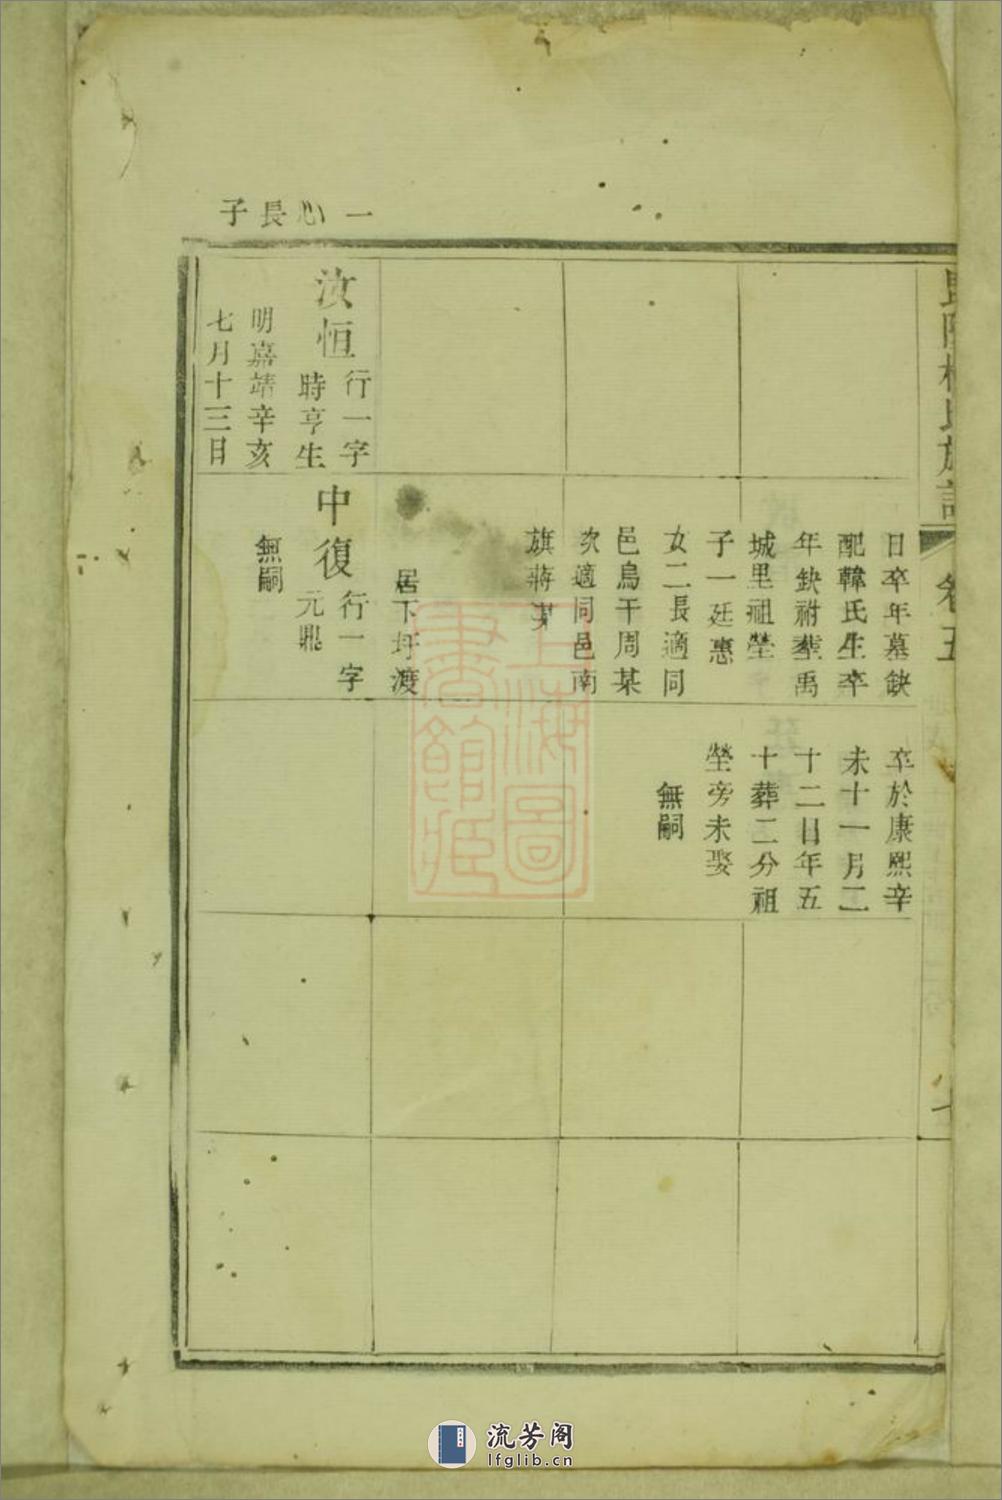 一心長子
卷五
日卒年墓缺
配韓氏生卒
年缺祔葬禹
城里祖塋
子一廷惠
女二長適同
邑烏干周某
次適同邑南
旗蔣某
居下圩渡
卒於康熙辛
未十一月二
十二日年五
十葬二分祖
塋旁未娶
無嗣
汝恒行一字
時亨生
明嘉靖辛亥
七月十三日
中復行一字
元鼎
無嗣
上海圖
書館藏
流芳阁
lfglib.cn